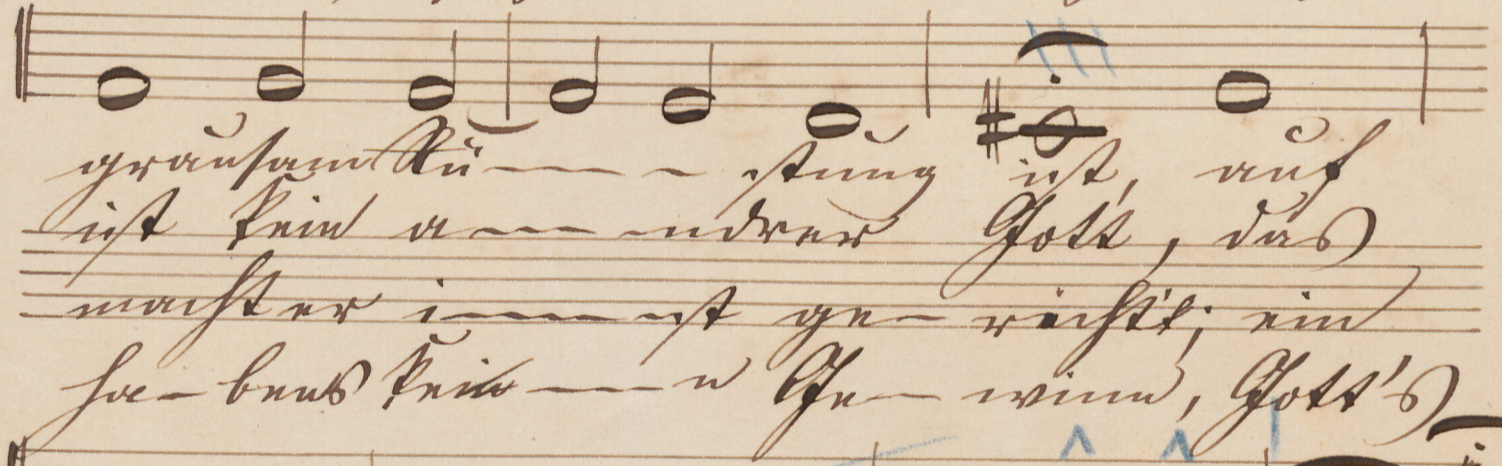 grausam Rü---stung ist, auf
ist kein a---ndrer Gott, das
macht er i---st ge-richt't; ein
ha-bens kein---n Ge-winn, Gott's